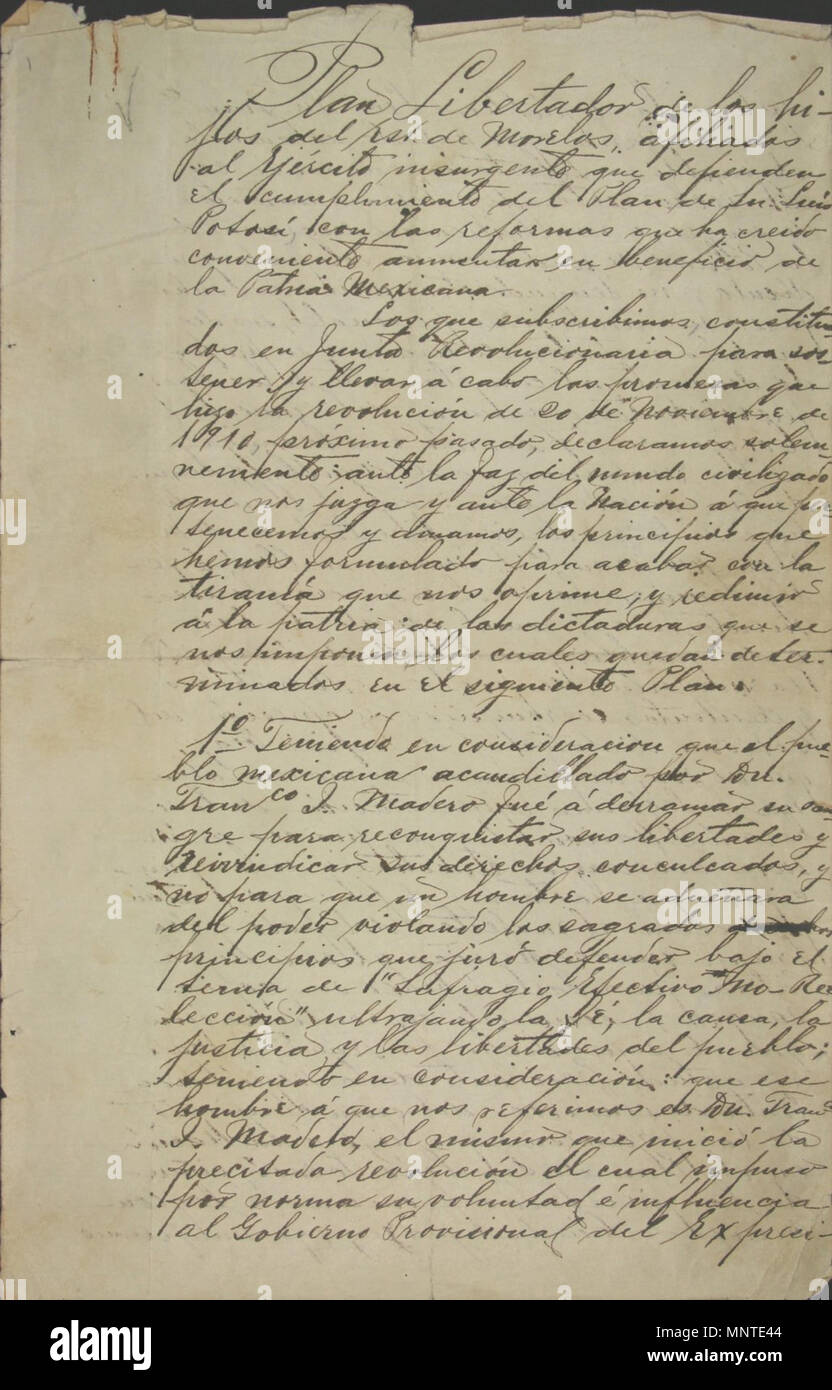 Plan Libertador de los hi-
jos del Est. de Morelos, afiliados
al Ejército insurgente que defienden
el cumplimiento del Plan de Sn. Luis
Potosí, con las reformas que ha creido
conveniente aumentar en beneficio de
la Patria Mexicana.
Los que subscribimos, constitui-
dos en Junta Revolucionaria para sos-
tener y llevar á cabo las promesas que
hizo la revolución de 20 de Noviembre de
1910, próximo pasado, declaramos solem-
nemente ante la faz del mundo civilizado
que nos juzga y ante la Nación á que per-
tenecemos y amamos, los principios que
hemos formulado para acabar con la
tiranía que nos oprime, y redimir
á la patria de las dictaduras que se
nos imponen, los cuales quedan deter-
minados en el siguiente Plan.
1º Teniendo en consideracion que el pue-
blo mexicano acaudillado por Dn.
Franco I. Madero fué á derramar su san-
gre para reconquistar sus libertades y
reivindicar sus derechos conculcados, y
no para que un hombre se adueñara
del poder violando los sagrados
principios que juró defender bajo el
tema de "Sufragio Efectivo" "No-Ree-
lección" ultrajando la fé, la causa, la
justicia y las libertades del pueblo;
teniendo en consideración: que ese
hombre á que nos referimos es Dn. Franco
I. Madero, el mismo que inició la
precitada revolución el cual impuso
por norma su voluntad é influencia
al Gobierno Provisional del Ex presi-
alamy
Image ID: MNTE44
www.alamy.com